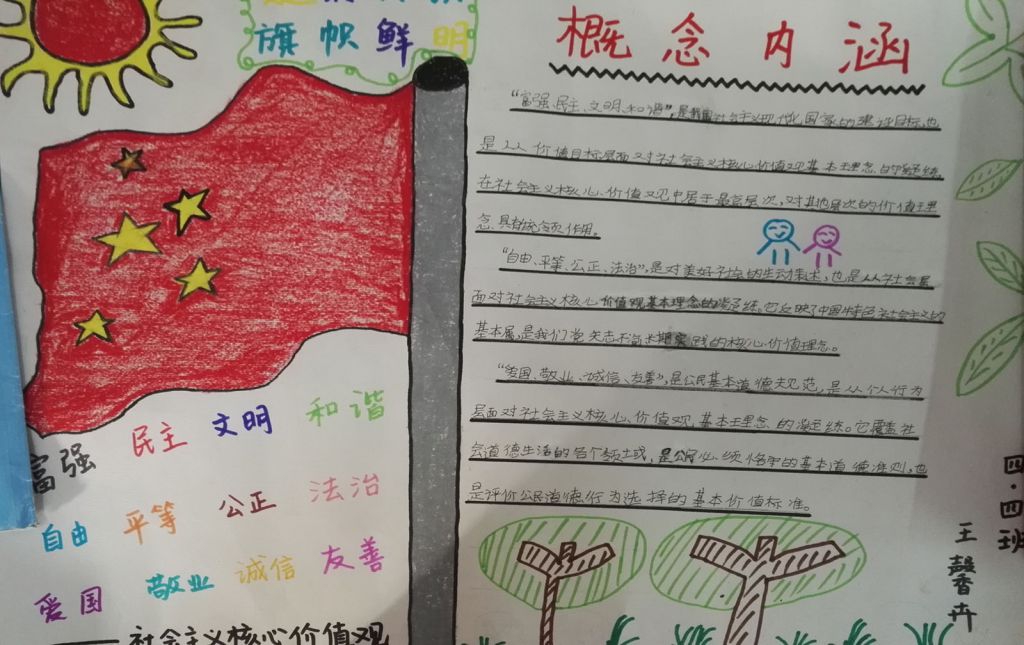 旗帜鲜明
富强 民主 文明 和谐
自由 平等 公正 法治
爱国 敬业 诚信 友善
社会主义核心价值观
概念内涵
"富强、民主、文明、和谐",是我国社会主义现代化国家的建设目标,也
是从价值目标层面对社会主义核心价值观基本理念的凝练,
在社会主义核心价值观中居于最高层次,对其他层次的价值理
念具有统领作用。
"自由、平等、公正、法治",是对美好社会的生动表述,也是从社会层
面对社会主义核心价值观基本理念的凝练。它反映了中国特色社会主义的
基本属,是我们党矢志不渝长期实践的核心价值理念。
"爱国、敬业、诚信、友善",是公民基本道德规范,是从个人行为
层面对社会主义核心价值观基本理念的凝练。它覆盖社
会道德生活的各个领域,是公民必须恪守的基本道德准则,也
是评价公民道德行为选择的基本价值标准。
四·四班
王馨卉